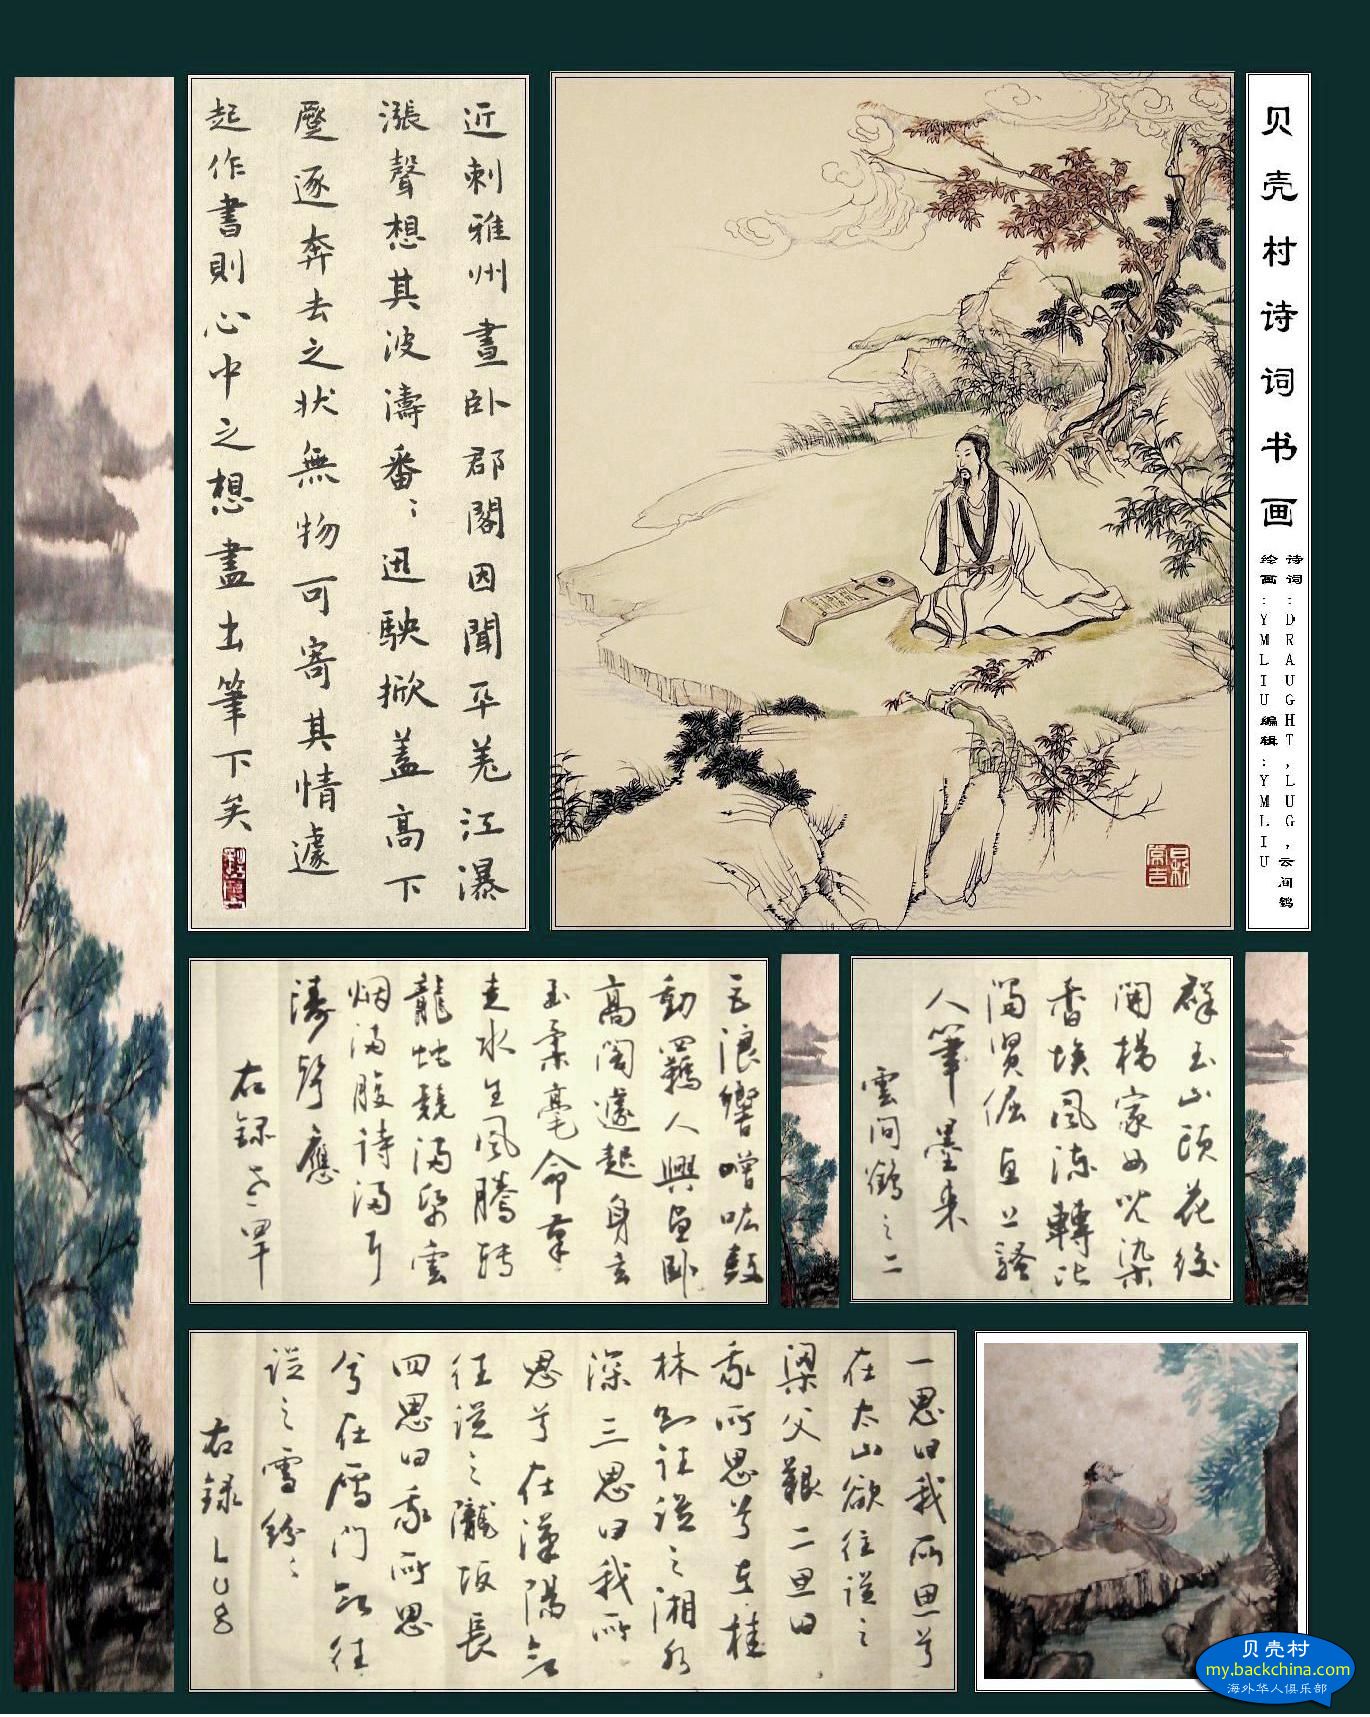 贝壳村诗词书画
诗词:DRAUGHT,LUG,云间鹤
绘画:YMLIU编辑:YMLIU
近刺雅州晝卧郡閣因聞平羌江瀑
漲聲想其波濤番﹕迅駚掀蓋高下
逐奔去之狀無物可寄其情遽
起作書則心中之想盡出筆下矣
巨浪響噌吰鼓
動羈人興卧
高閣遽起身玄
玉柔毫命草
走水生風騰轉
龍蛇競滿紙雲
烟滿腹詩滿耳
濤聲應
右録
群玉山頭花後
開楊家女兒染
香埃風流轉比
上騷
人筆墨来
雲间鶴之二
一思曰我所思兮
在太山欲往從之
梁父艱二思曰
我所思兮在桂
林欲往從之湘水
深三思曰我所
思兮在漢陽欲
往從之隴坂長
四思曰我所思
兮在雁門欲往
從之雪紛﹕
右録LUG
贝壳村
my.backchina.com
海外华人俱乐部